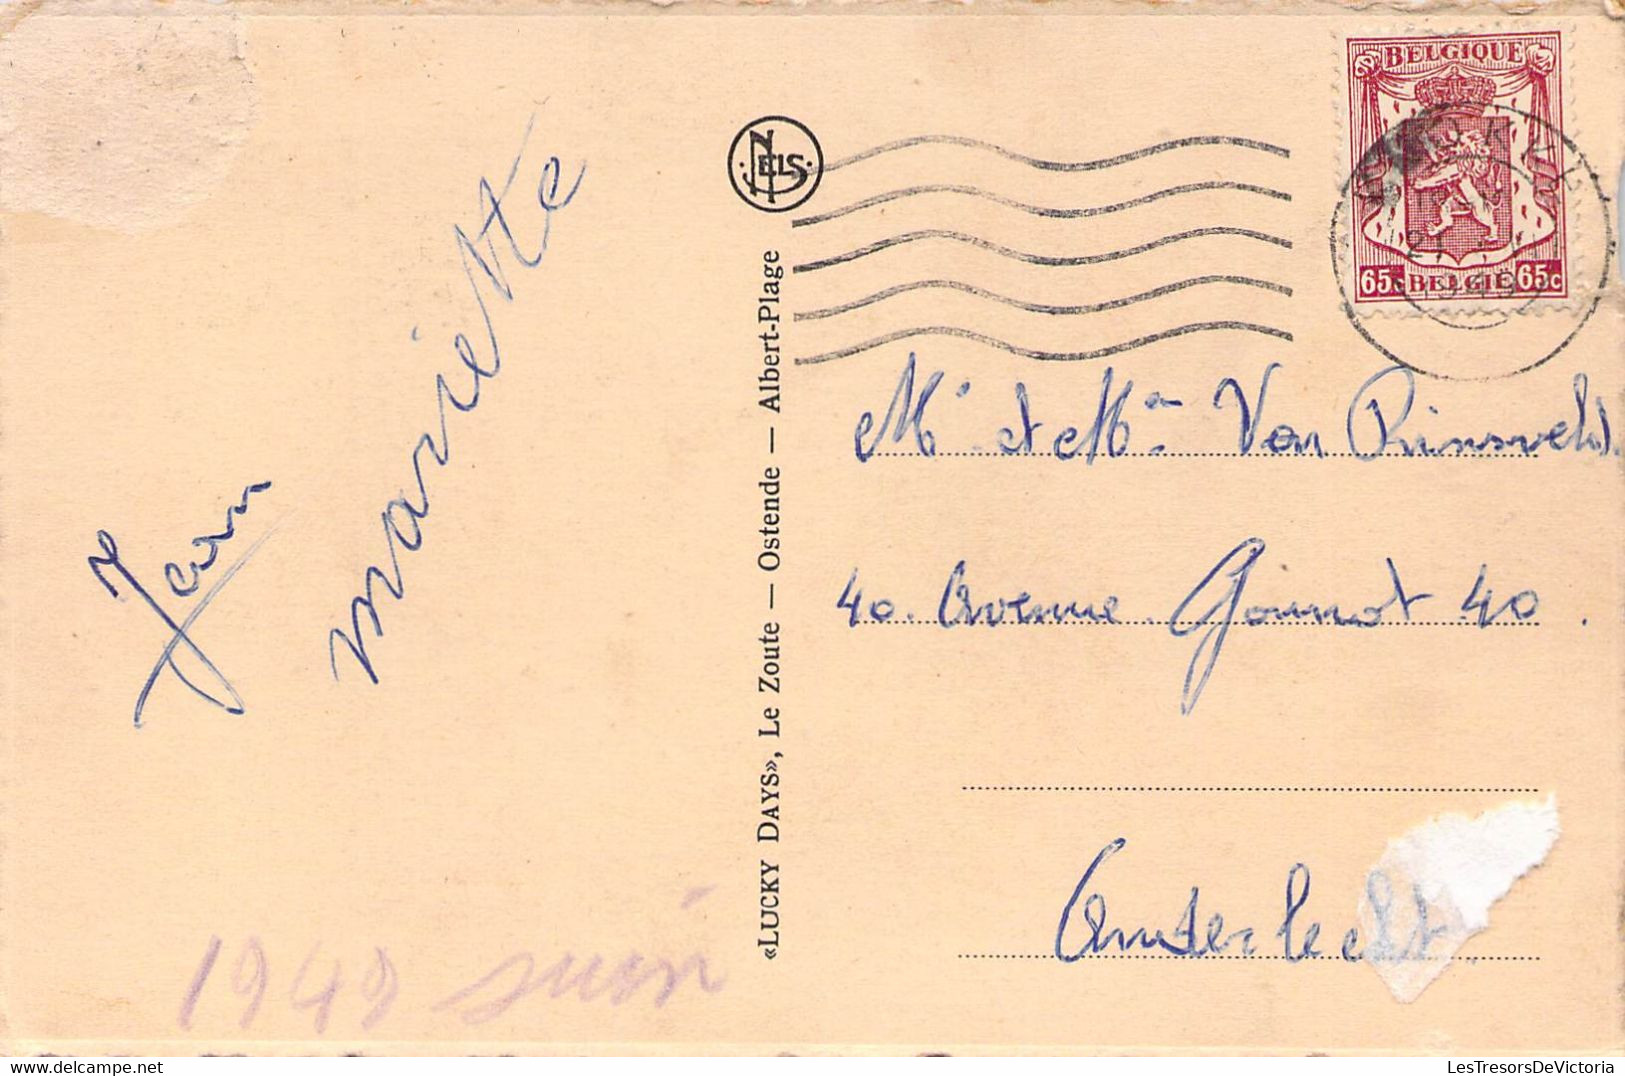 Jean
mariette
1949 juin
NELS
«LUCKY DAYS», Le Zoute — Ostende — Albert-Plage
BELGIQUE
65c BELGIE 65c
21
1949
Mr et Mme Van
40. Avenue 40.
Anderlecht.
LesTresorsDeVictoria